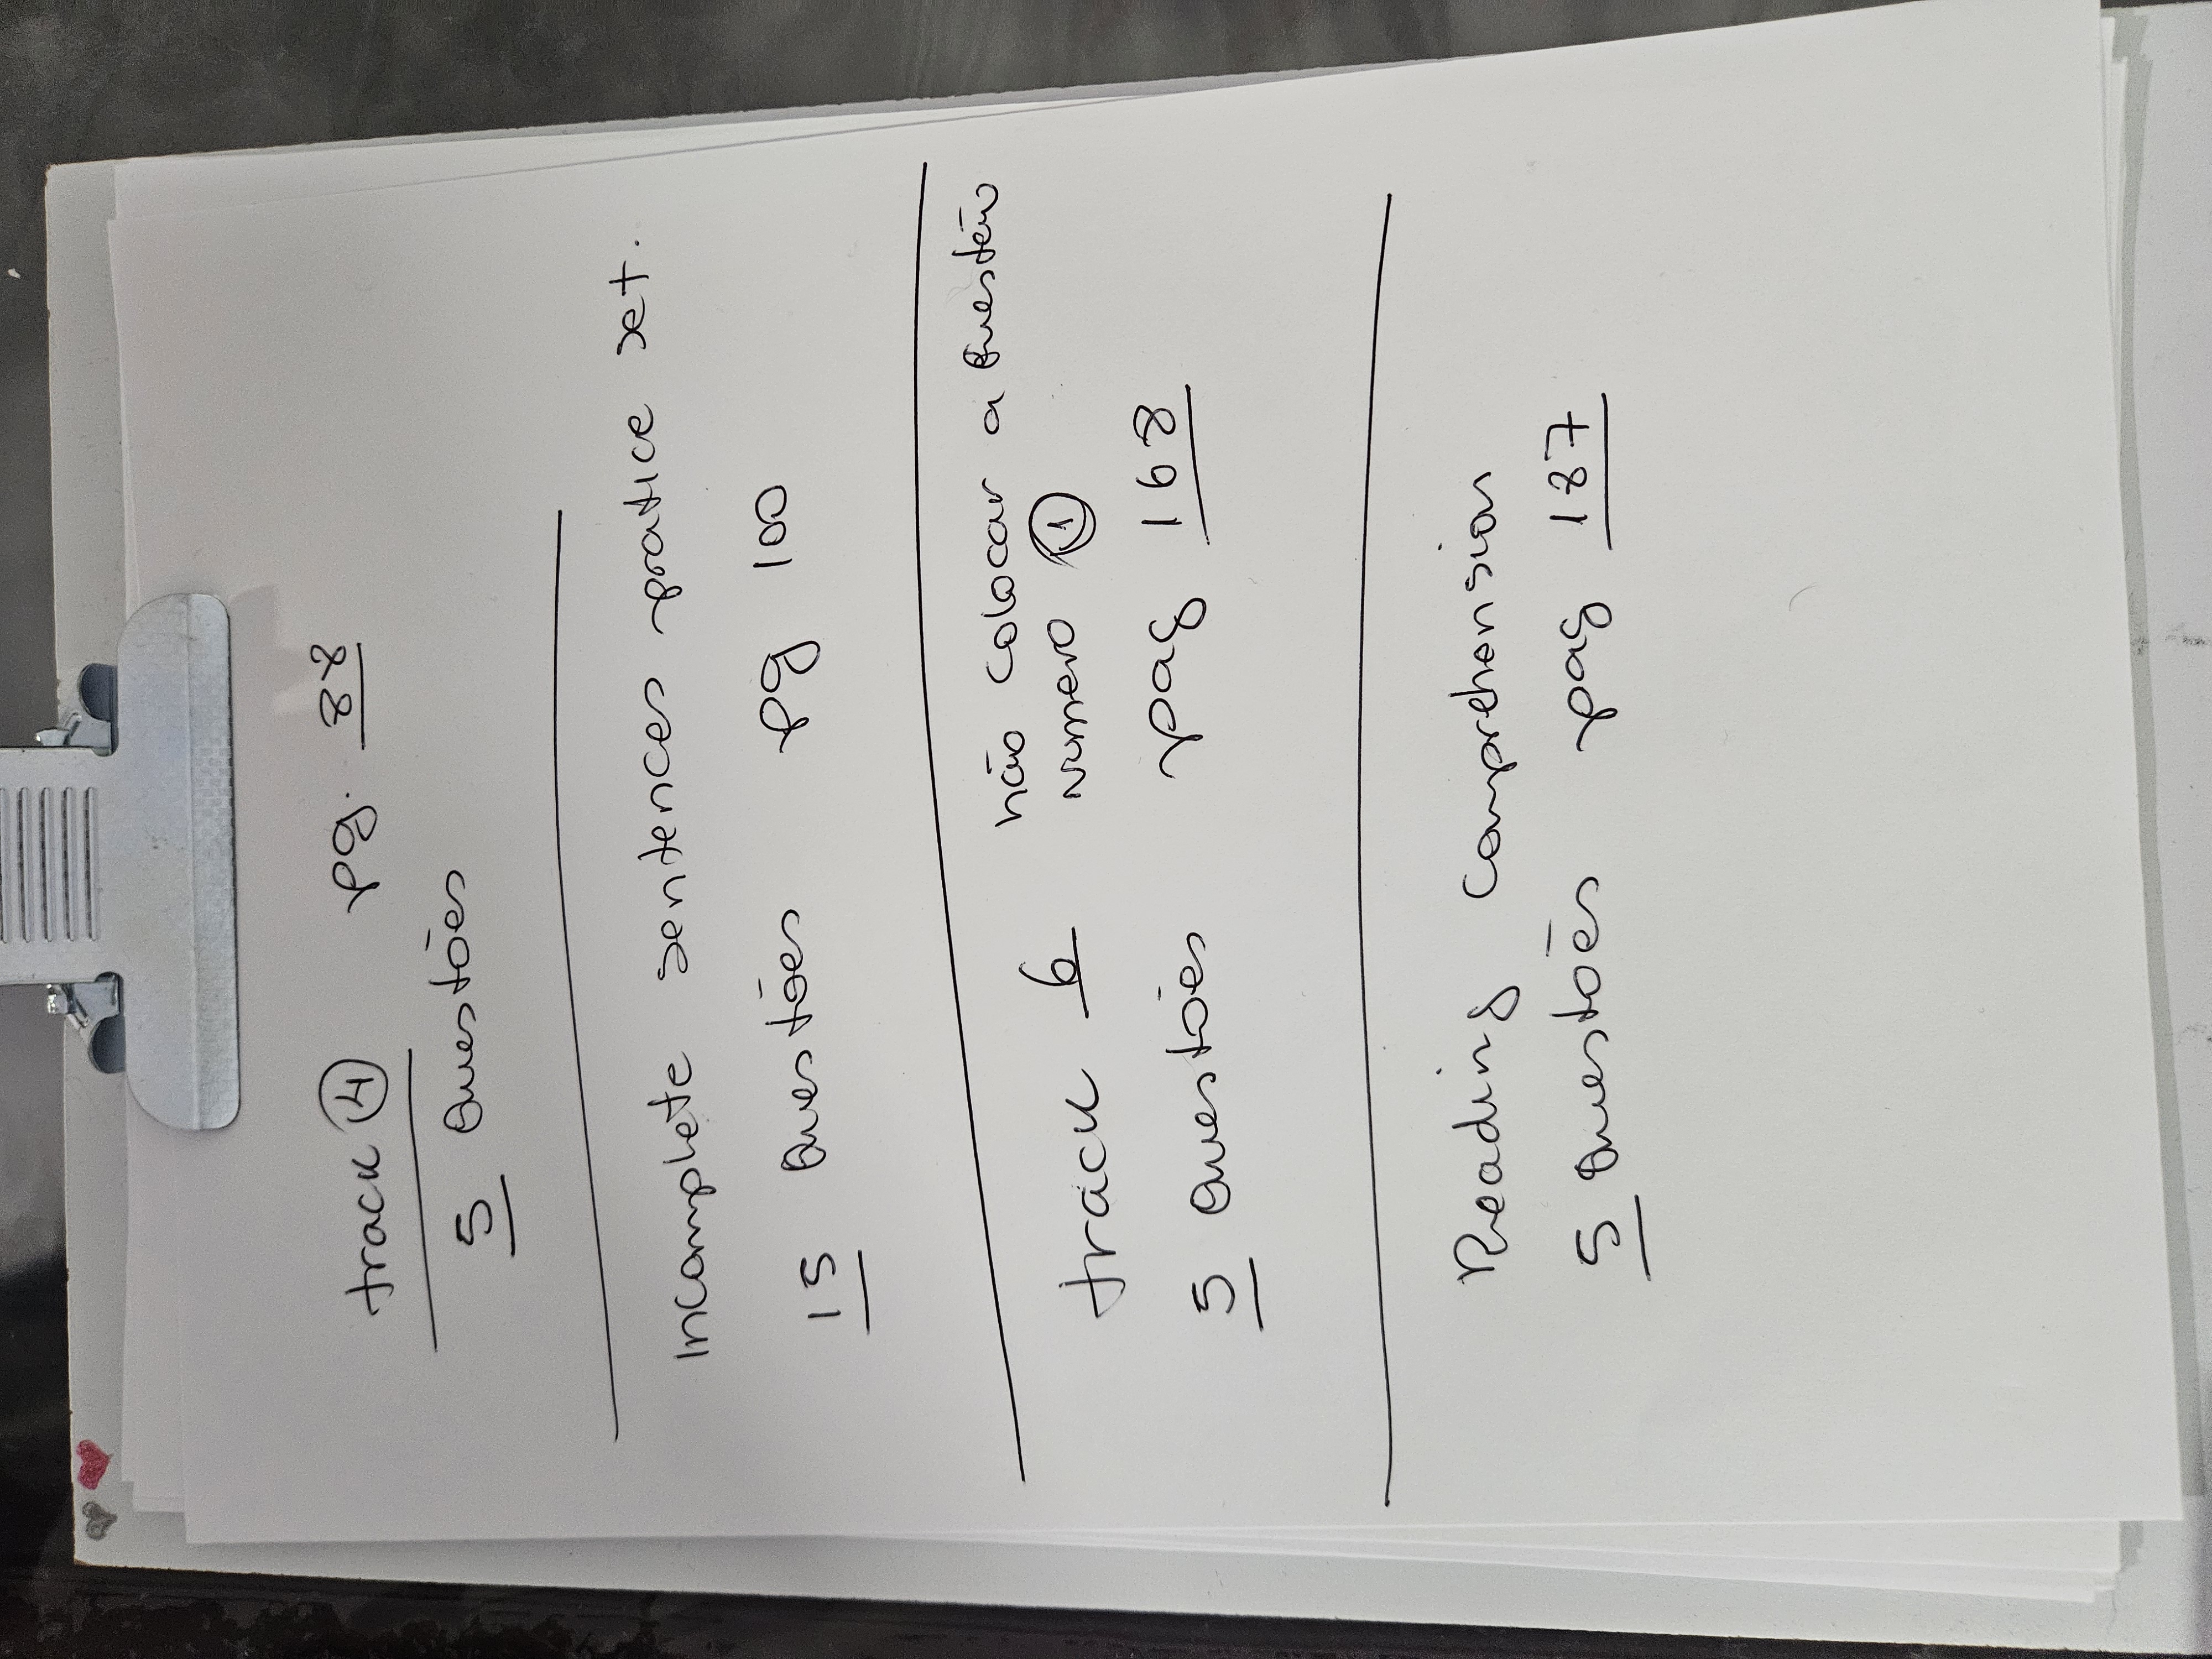 track 4 pg. 88
5 Questões
Incomplete sentences pratice set.
15 Questões pg 100
não colocar a Questão
track 6 número 1
5 Questões pag 168
Reading Comprehension
5 Questões pag 187